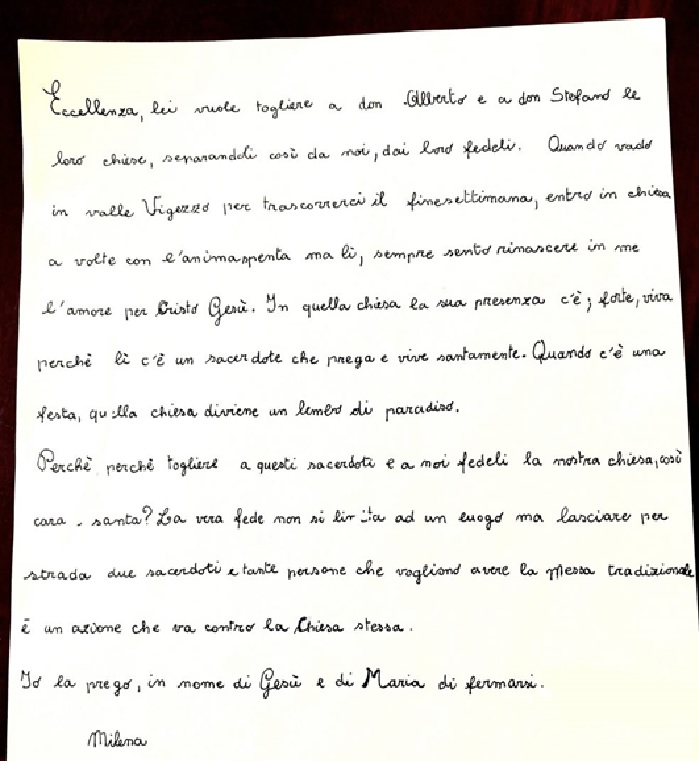 Eccellenza, lei vuole togliere a don Alberto e a don Stefano le
loro chiese, separandoli così da noi, dai loro fedeli. Quando vado
in valle Vigezzo per trascorrerci il finesettimana, entro in chiesa
a volte con l'anima spenta ma lì, sempre sento rinascere in me
l'amore per Cristo Gesù. In quella chiesa la sua presenza c'è; forte, viva
perchè lì c'è un sacerdote che prega e vive santamente. Quando c'è una
festa, quella chiesa diviene un lembo di paradiso.
Perchè perchè togliere a questi sacerdoti e a noi fedeli la nostra chiesa, così
cara, santa? La vera fede non si limita ad un luogo ma lasciare per
strada due sacerdoti e tante persone che vogliono avere la Messa tradizionale
è un azione che va contro la Chiesa stessa.
Io la prego, in nome di Gesù e di Maria di fermarsi.
Milena